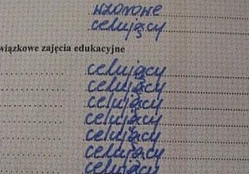 wzorowe
celujący
wiązkowe zajęcia edukacyjne
celujący
celujący
celujący
celujący
celujący
celujący
celujący